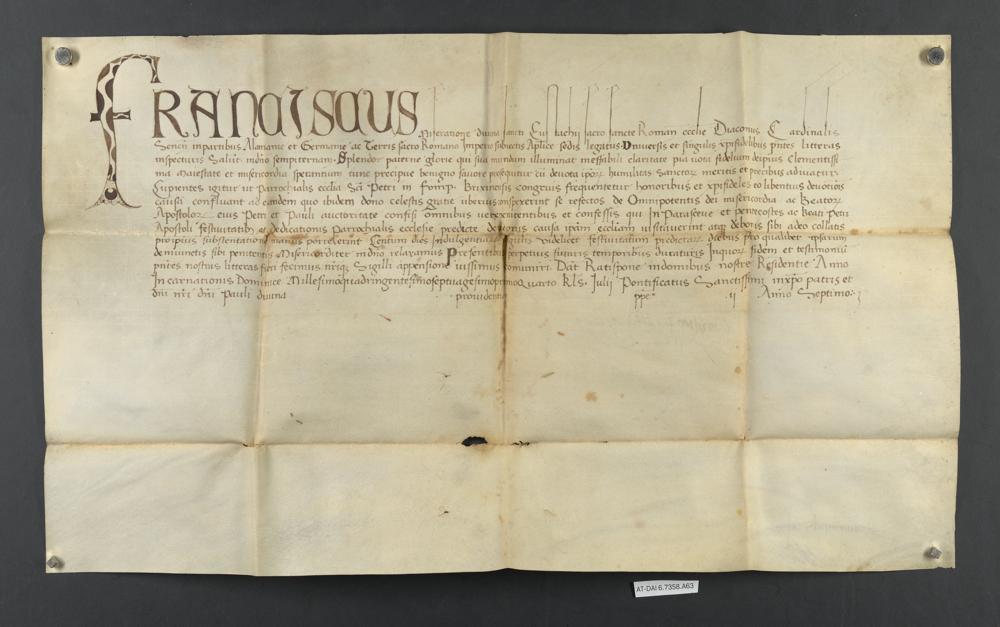 FRANCISCUS Miseratione divina sancti Eustachii sacro sancte Roman ecclie Diaconus Cardinalis
Senen in partibus Alamanie et Germanie ac Terris sacro Romano Imperio subiectis Aplice sedis legatus. Universis et singulis xpifidelibus pntes litteras
inspecturis Salut indno sempiternam. Splendor paterne glorie qui sua mundum illuminat ineffabili claritate pia vota fidelium deipsius clementissi
ma maiestate et misericordia sperantium tunc precipue benigno favore prosequitur cu devota ipor humilitas sanctor meritis et precibus adiuvatur
Cupientes igitur ut Parrochialis ecclia Sci Petri in Brixinensis congruis frequentetur honoribus et xpifideles eo libentius devotionis
causa confluant ad eandem quo ibidem dono celestis gratie uberius conspexerint se refectos de Omnipotentis dei misericordia ac Beator
Apostolor eius Petri et Pauli auctoritate confisi omnibus vere penitentibus et confessis qui In Parasceve et penthecostes ac Beati Petri
Apostoli festivitatib et dedicationis Parrochialis ecclesie predicte devotionis causa ipam eccliam visitaverint atq deboris sibi adeo collatis
propriis substentationi manus porrexerint Centum dies Indulgentiarum videlicet festivitatum predictar diebus pro qualibet ipsarum
de iniunctis sibi penitentiis Misericorditer indno relaxamus Presentibus perpetuis futuris temporibus duraturis Inquor fidem et testimoniu
pntes nostras litteras fieri fecimus nriq Sigilli appensione iussimus comuniri. Dat Ratispone indomibus nostre Residentie Anno
Incarnationis Dominice Millesimoquadringentesimoseptuagesimoprimo Quarto Kls. Iulii Pontificatus Sanctissimi inxpo patris et
dni nri dni Pauli divina providentia ppe ii Anno Septimo:
AT-DAI 6.7358.A63